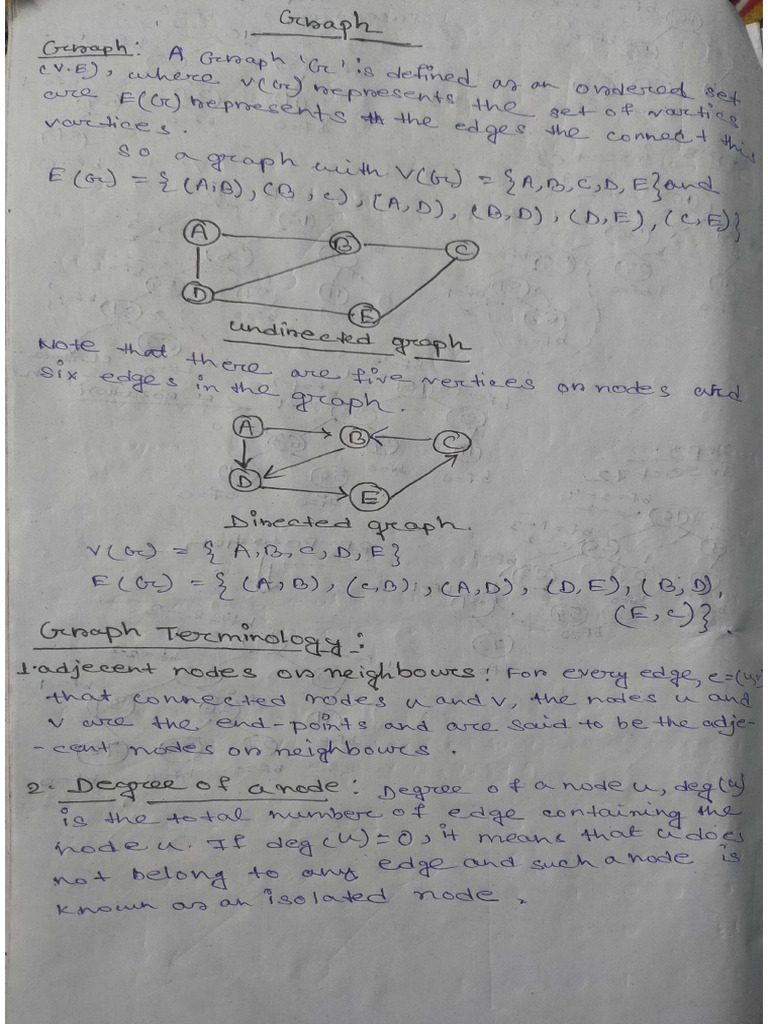 Graph
Graph: A Graph 'G' is defined as an ordered set
(V.E), where V(G) represents the set of vartics
are E(G) represents the edges the connect this
vartices.
so a graph with V(G) = {A,B,C,D,E} and
E(G) = {(A,B), (B,c), (A,D), (B,D), (D,E), (C,E)}
A
B
C
D
E
undirected graph
Note that there are five vertices or nodes and
six edges in the graph.
A
B
C
D
E
Directed graph.
V(G) = {A,B,C,D,E}
E(G) = {(A,B), (c,B), (A,D), (D,E), (B,D),
(E,c)}.
Graph Terminology:
1. adjecent nodes or neighbours: For every edge, e=(u,v)
that connected nodes u and v, the nodes u and
v are the end-points and are said to be the adje-
-cent nodes or neighbours.
2. Degree of a node: Degree of a node u, deg(u)
is the total number of edge containing the
node u. If deg(u)=0, it means that u does
not belong to any edge and such a node is
known as an isolated node.